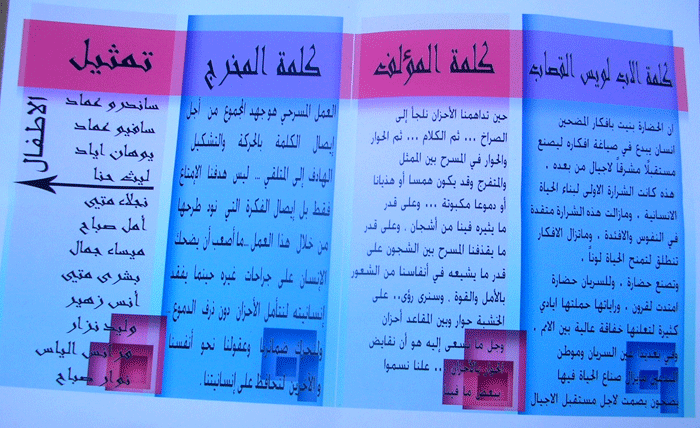 كلمة الاب لويس القصاب
ان الحضارة بنيت بافكار المضحين
انسان يبدع في صياغة افكاره ليصنع
مستقبلاً مشرفاً لاجيال من بعده .
هذه كانت الشرارة الاولى لبناء الحياة
الانسانية . ومازالت هذه الشرارة متقدة
في النفوس والافئدة . وماتزال الافكار
تنطلق لتمنح الحياة لوناً .
وتصنع حضارة . وللسريان حضارة
امتدت لقرون . وراياتها حملتها ايادي
كثيرة لتعلنها خفاقة عالية بين الامم .
السريان وموطن
صناع الحياة فيها
بصمت لاجل مستقبل الاجيال
كلمة المؤلف
حين تداهمنا الأحزان نلجأ إلى
الصراخ ... ثم الكلام ... ثم الحوار
والحوار في المسرح بين الممثل
والمتفرج وقد يكون همسا أو هذيانا
أو دموعا مكبوتة ... وعلى قدر
ما يثيره فينا من أشجان . وعلى قدر
ما يقذفنا المسرح بين الشجون على
قدر ما يشيعه في أنفاسنا من الشعور
بالأمل والقوة . وسنرى رؤى.. على
الخشبة حوار وبين المقاعد أحزان
وجل ما نسعى إليه هو أن نقايض
الحزن بالأحزان .. علنا نسموا
ببعض ما فينا
كلمة المخرج
العمل المسرحي هو جهد المجموع من أجل
إيصال الكلمة بالحركة والتشكيل
الهادف إلى المتلقي ... ليس هدفنا الإمتاع
فقط بل إيصال الفكرة التي نود طرحها
من خلال هذا العمل ...ما أصعب أن يضحك
الإنسان على جراحات غيره حينها يفقد
إنسانيته لنتأمل الأحزان دون ذرف الدموع
ضمائرنا وعقولنا نحو أنفسنا
والآخرين لنحافظ على إنسانيتنا .
تمثيل
الاطفال
ساندرو عماد
سافيو عماد
يوهان اياد
ليث حنا
نجلاء متي
أمل صباح
ميساء جمال
بشرى متي
أنس زهير
وليد نزار
فراس الياس
نوار صباح